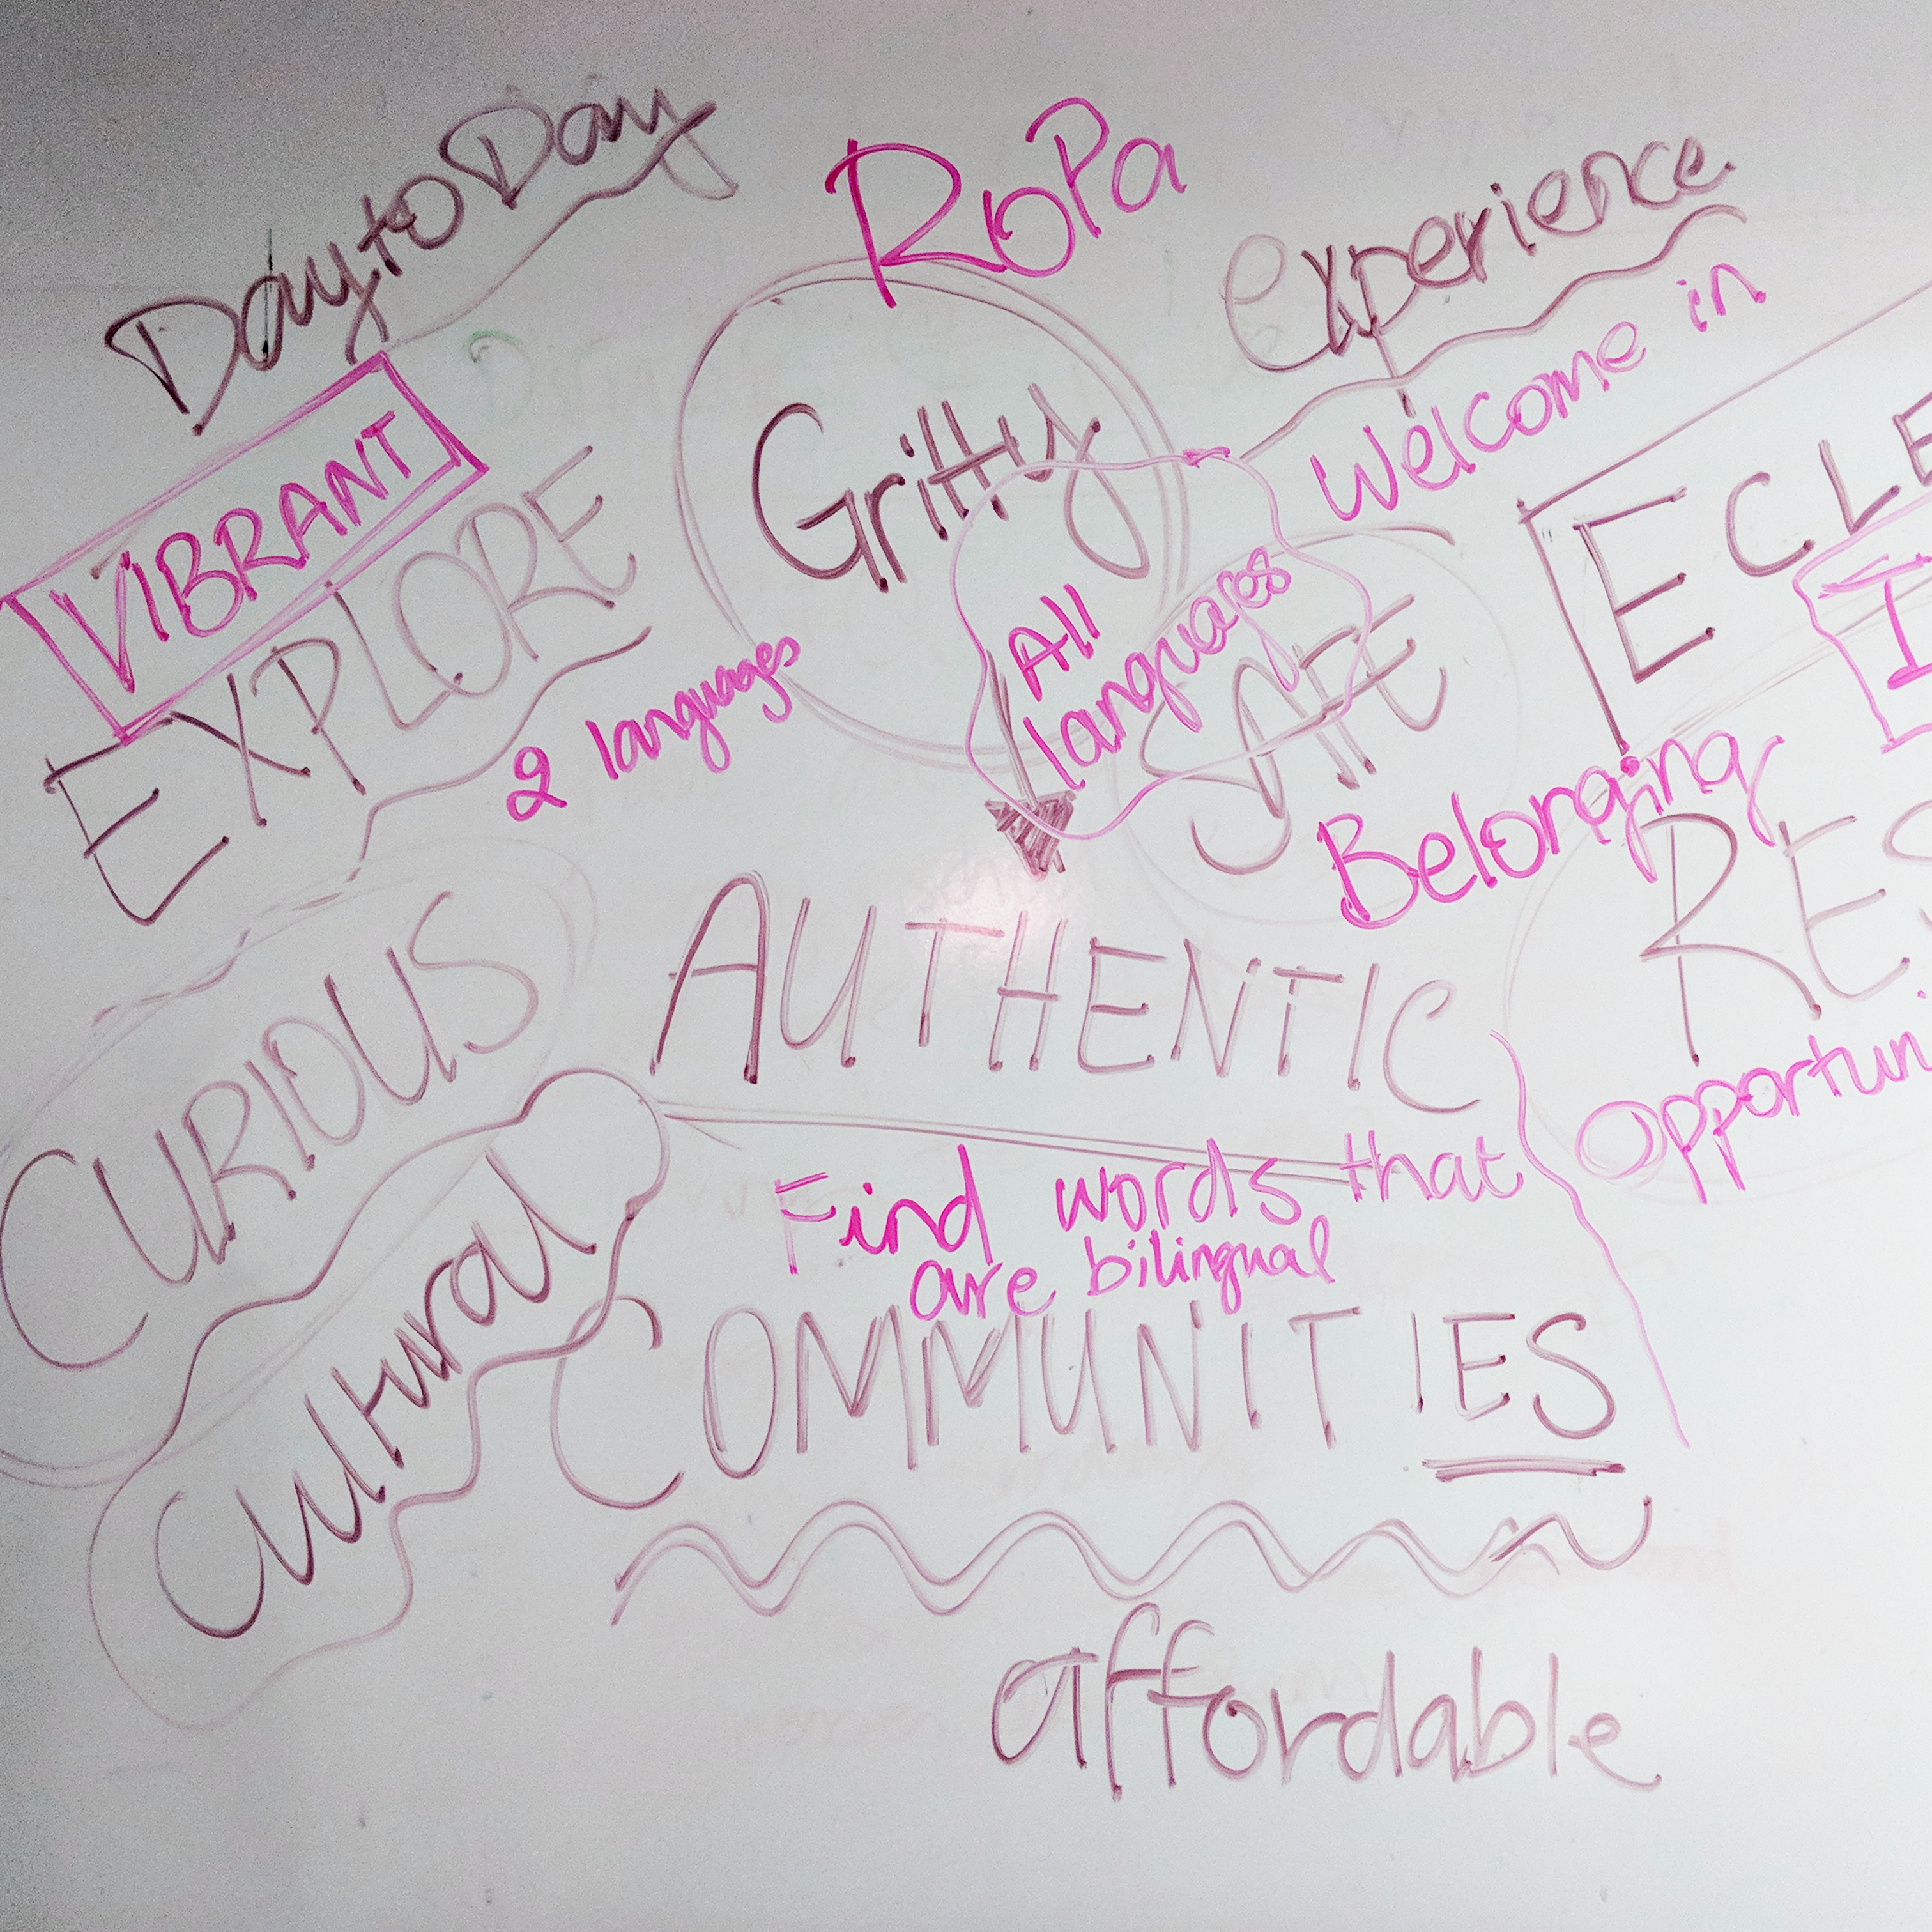 Day to Day
RoPa
Experience
Welcome in
VIBRANT
Gritty
ECLE
EXPLORE
All
languages
I
2 languages
SAFE
Belonging
RES
CURIOUS
AUTHENTIC
opportuni
Cultural
Find words that
are bilingual
COMMUNITIES
affordable